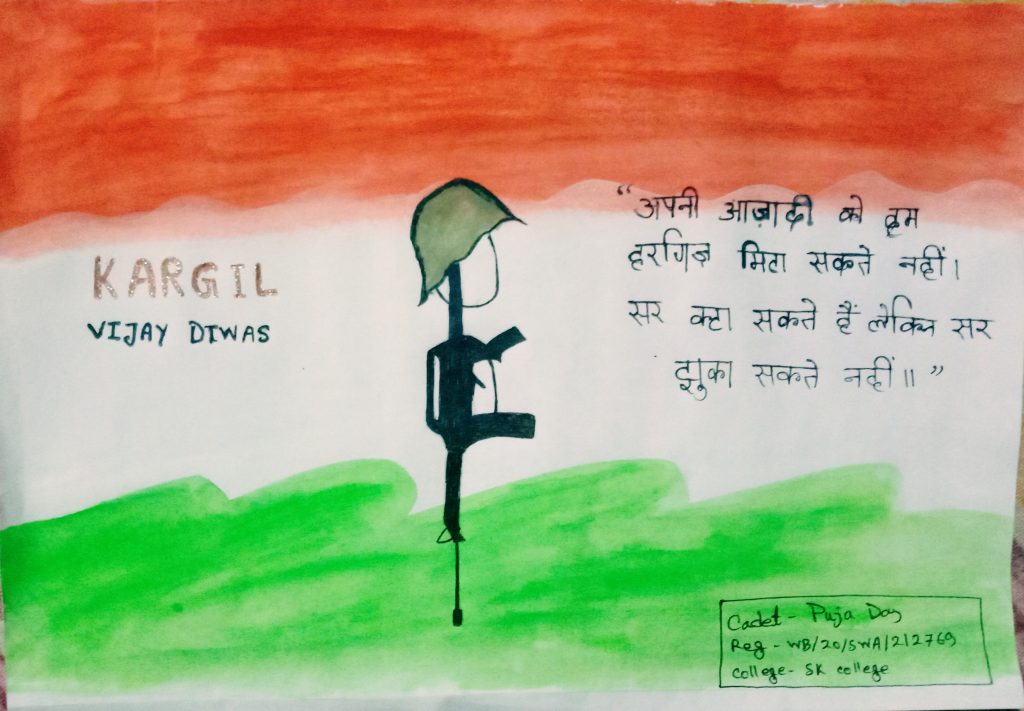 KARGIL
VIJAY DIWAS
“अपनी आज़ादी को हम
हरगिज़ मिटा सकते नहीं।
सर कटा सकते हैं लेकिन सर
झुका सकते नहीं॥”
Cadet - Puja Das
Reg - WB/20/SWA/212769
College - SK college